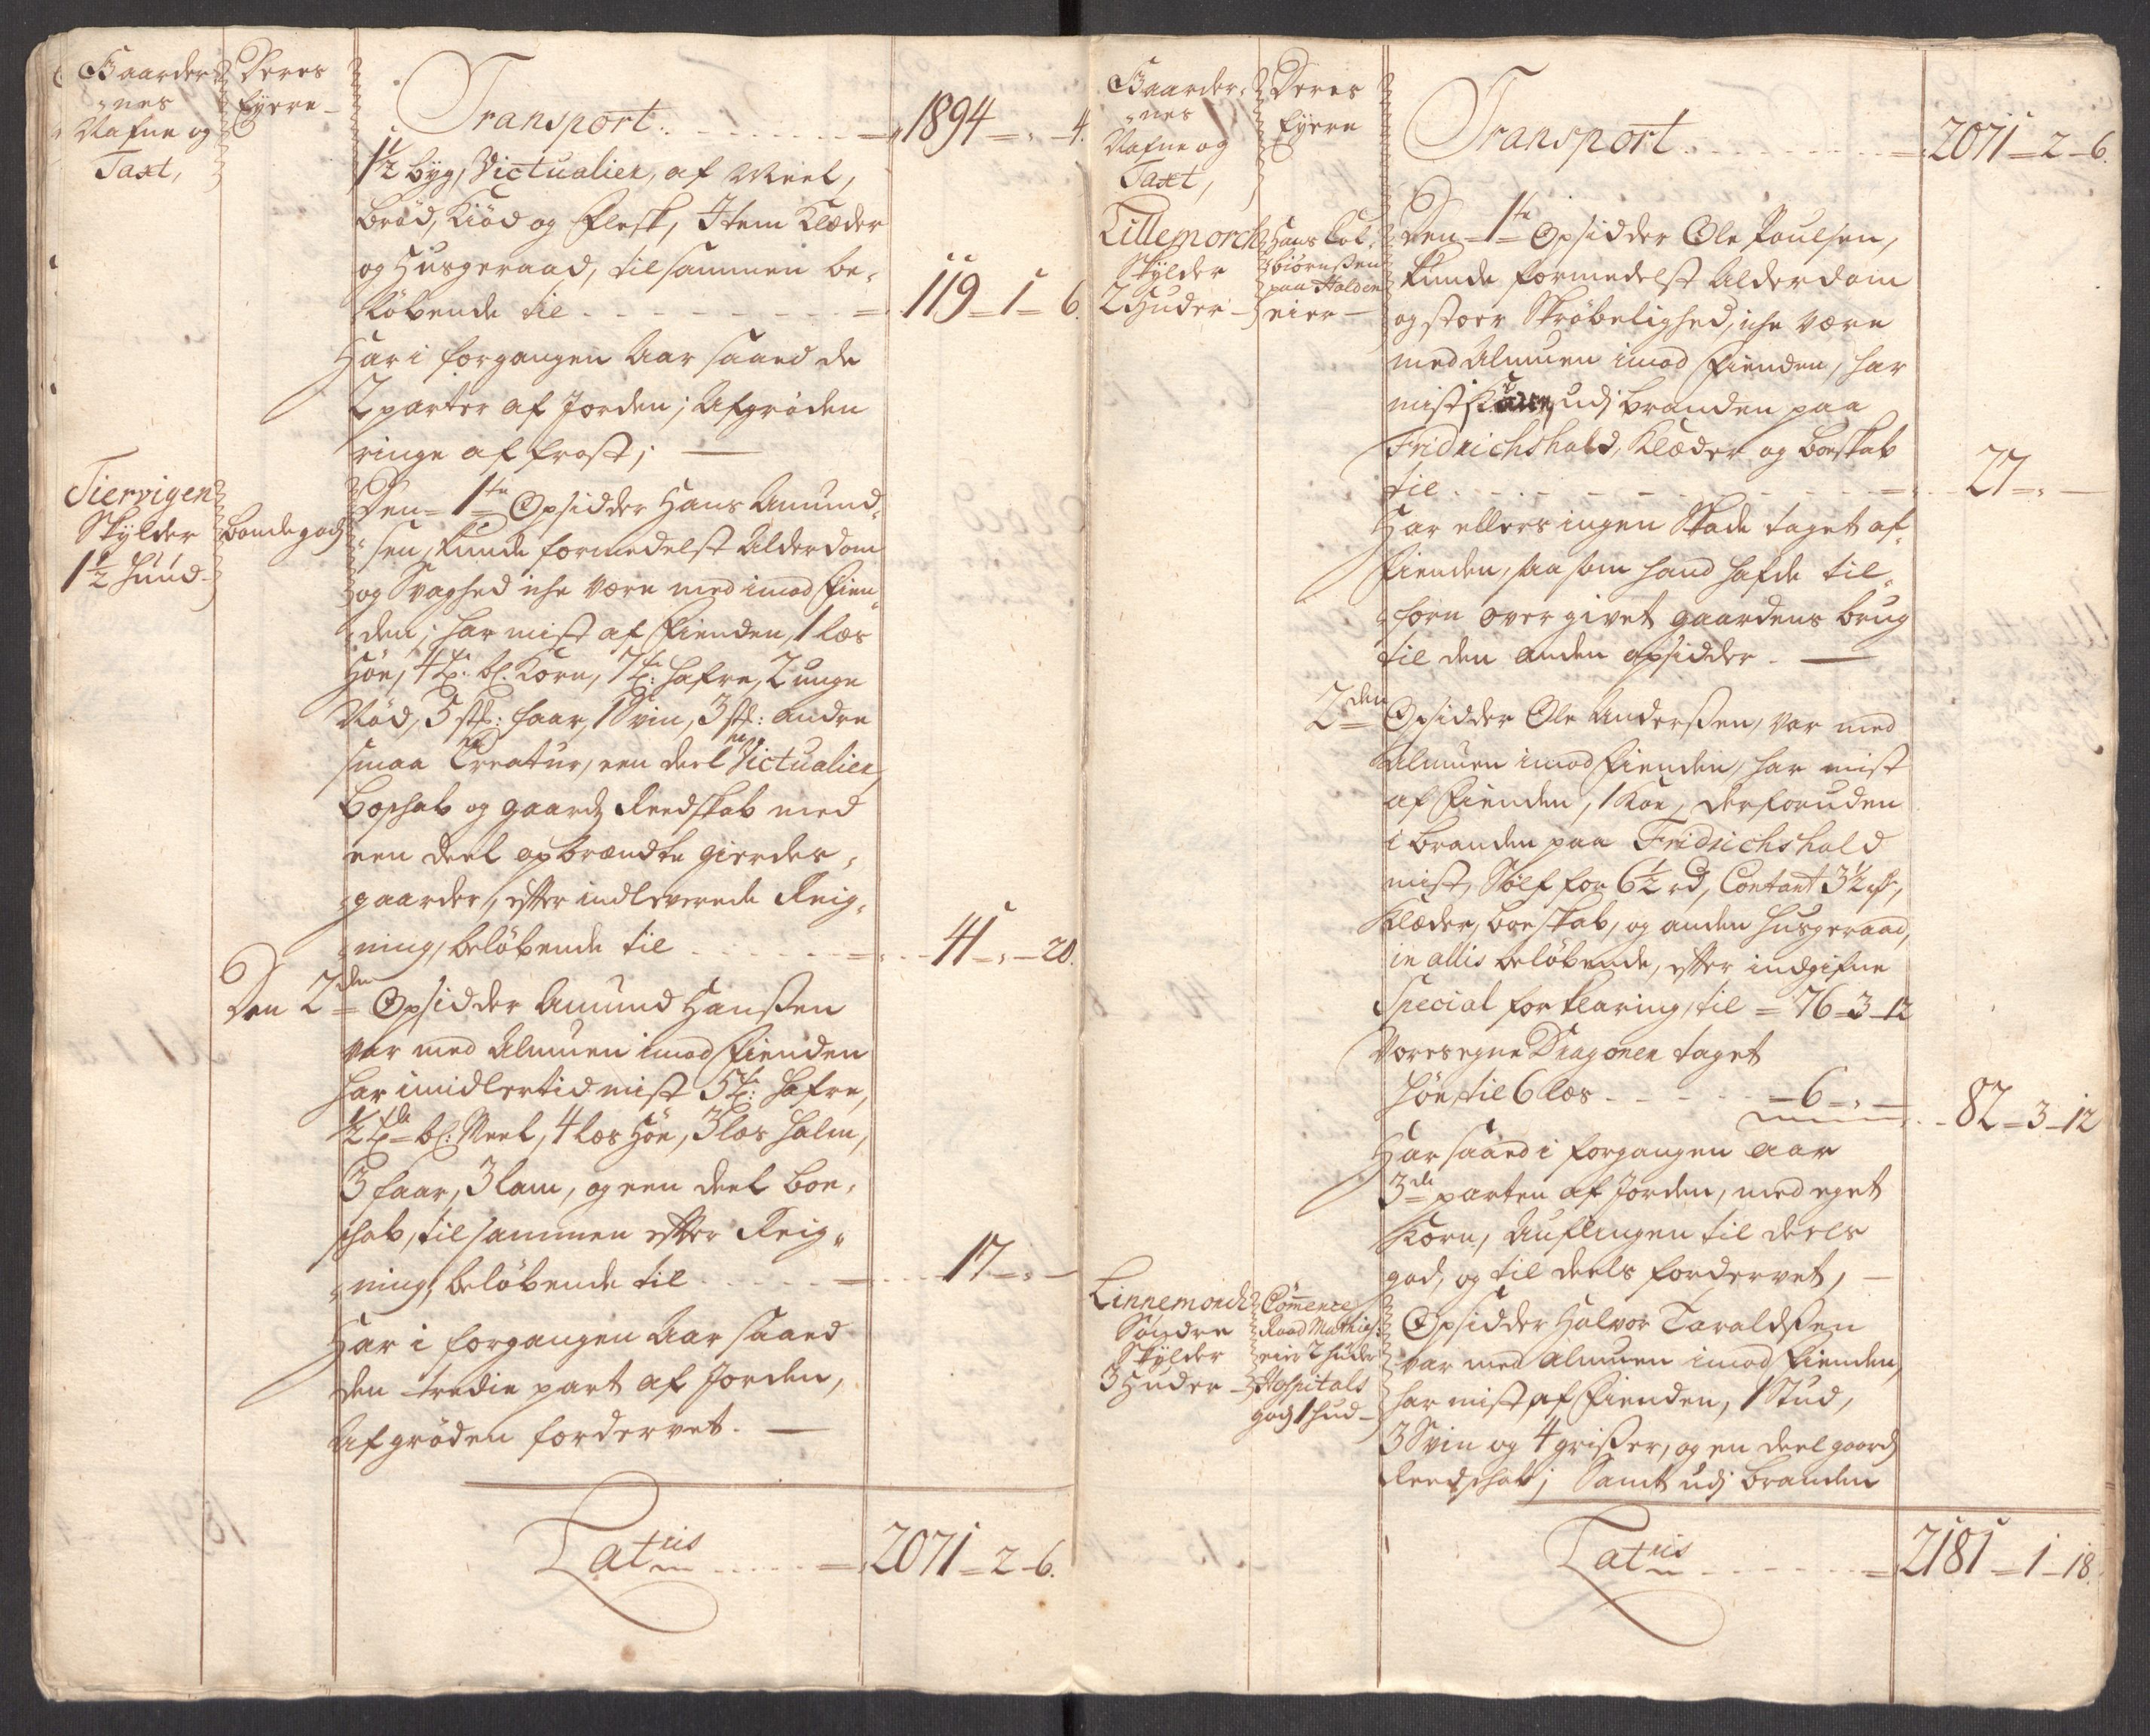 Gaarder-
nes
Nafne og
Taxt,
Deres
Eyere
Transport. 1894 - „ - 4.
1½ byg, Victualier, af Meel,
Brød, Kiød og Flesk, Item Klæder
og Husgeraad, tilsammen be-
løbende til 119 - 1 - 6.
Har i forgangen Aar saaed de
2 parter af Jorden; Afgrøden
ringe af frost;
Tiervigen
Skylder
1½ Huud
Bondegods
Den 1te Opsidder Hans Amund-
sen, Kunde formedelst Alderdom
og Svaghed iche være med imod Fien-
den; har mist af Fienden, 1 læs
Høe, 4 t: bl. Korn, 7 t: Hafre, 2 unge
Nød, 5 stk: Faar, 1 Svin, 3 stk: andre
smaa Creatur, een deel Victualier,
Boschab og gaards Reedskab med
een deel opbrændte gierdes-
gaarder, efter indleverede Reig-
ning, beløbende til 41 - „ - 20.
Den 2den Opsidder Amund Hanssen
var med Almuen imod Fienden
har imidlertid mist 5 t: Hafre,
½ tde bl: Meel, 4 læs Høe, 3 læs Halm,
3 Faar, 3 lam, og een deel Boe-
schab, tilsammen efter Reig-
ning, beløbende til 17 - „ -
Har i forgangen Aar saaed
den tredie part af Jorden,
Afgrøden fordervet.
Latus 2071 - 2 - 6.
Gaarder-
nes
Nafne og
Taxt,
Deres
Eyere
Transport 2071 - 2 - 6.
Lillemorch
Skylder
2 Huder
Hans Col-
biørnssen
paa Halden
eier
Den 1te Opsidder Ole Poulsen,
Kunde formedelst Alderdom
og stoer Skrøbelighed, iche være
med Almuen imod Fienden, har
mist udj Branden paa
Fridrichshald, Klæder og Boeskab
til 27 - „ -
Har ellers ingen Skade taget af
Fienden, saasom hand hafde til-
forn overgivet gaardens brug
til den anden opsidder.
2den Opsidder Ole Anderssen, var med
Almuen imod Fienden, har mist
af Fienden, 1 Koe, derforuden
i Branden paa Fridrichshald
mist, Sølf for 6½ rd, Contant 3½ rdr,
Klæder, boeskab, og anden Husgeraad,
in allis beløbende, efter indgifne
Special forklaring, til = 76 - 3 - 12
Vores egne Dragoner taget
Høe, til 6 læs 6 - „ - 82 - 3 - 12
Har saaed i forgangen aar
3de parten af Jorden, med eget
Korn, Auflingen til deels
god, og til deels fordervet,
Linnemorch
Søndre
Skylder
3 Huder
Commerce
Raad Mathies:
eier 2 huder
Hospitals
gods 1 hud
Opsidder Halvor Taraldssen
var med almuen imod Fienden,
har mist af Fienden, 1 Stud,
3 Svin og 4 grisser, og en deel gaards
Reedschab; Samt udj Branden
Latus 2181 - 1 - 18.